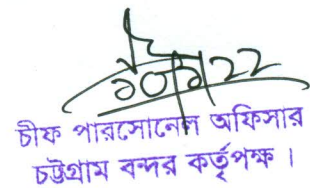 চীফ পারসোনেল অফিসার
চট্টগ্রাম বন্দর কর্তৃপক্ষ ।